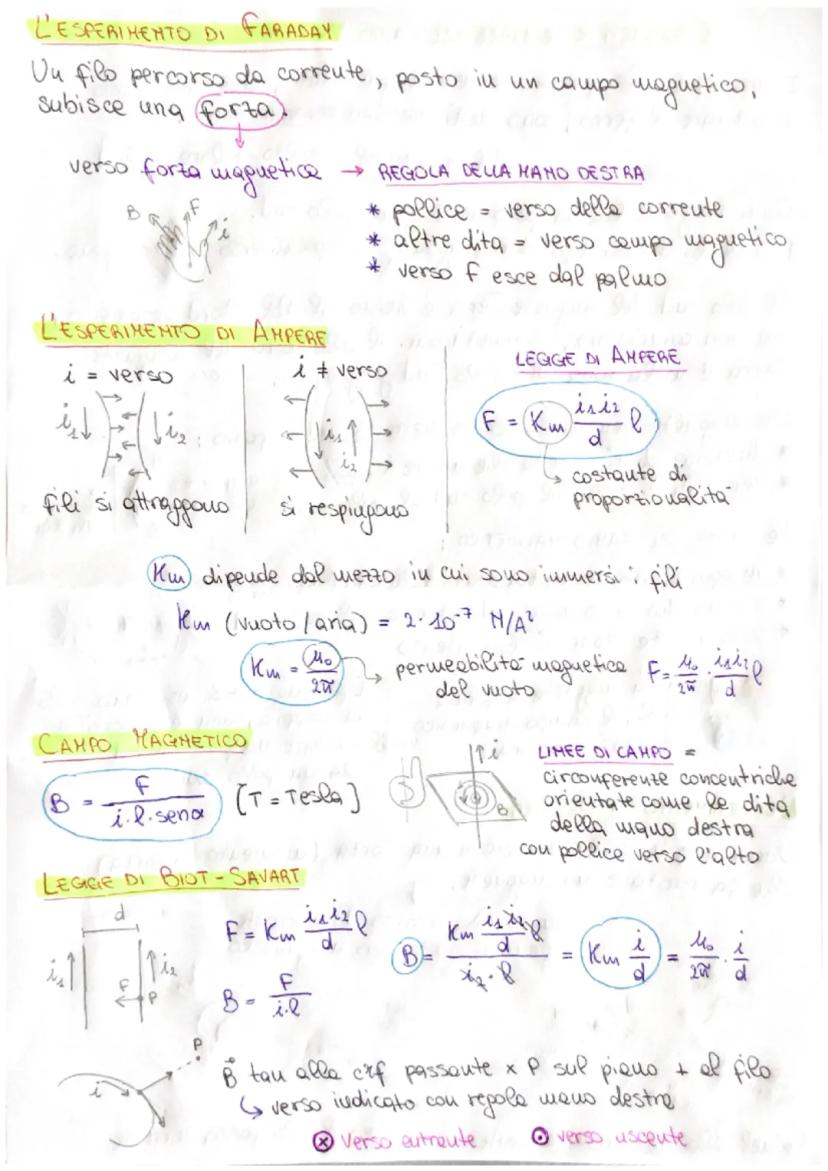 L'ESPERIMENTO DI FARADAY
Un filo percorso da corrente, posto in un campo magnetico,
subisce una forza.
verso forza magnetica → REGOLA DELLA MANO DESTRA
B F i
* pollice = verso della corrente
* altre dita = verso campo magnetico
* verso F esce dal palmo
L'ESPERIMENTO DI AMPERE
i = verso
i₁ i₂
fili si attraggono
i ≠ verso
i₁ i₂
si respingono
LEGGE DI AMPERE
F = Km i₁i₂/d l
costante di
proporzionalità
Km dipende dal mezzo in cui sono immersi i fili
Km (vuoto/aria) = 2·10⁻⁷ N/A²
Km = μ₀/2π → permeabilità magnetica
del vuoto
F = μ₀/2π · i₁i₂/d l
CAMPO MAGNETICO
B = F/i·l·senα [T = Tesla]
i
B
LINEE DI CAMPO =
circonferenze concentriche
orientate come le dita
della mano destra
con pollice verso l'alto
LEGGE DI BIOT-SAVART
d
i₁ i₂
F P
F = Km i₁i₂/d l
B = F/i·l
B = Km i₁i₂/d l / i₂·l = Km i/d = μ₀/2π · i/d
P
i
B⃗ tan alla crf passante x P sul piano ⊥ al filo
↳ verso indicato con regola mano destra
⊗ verso entrante ⊙ verso uscente